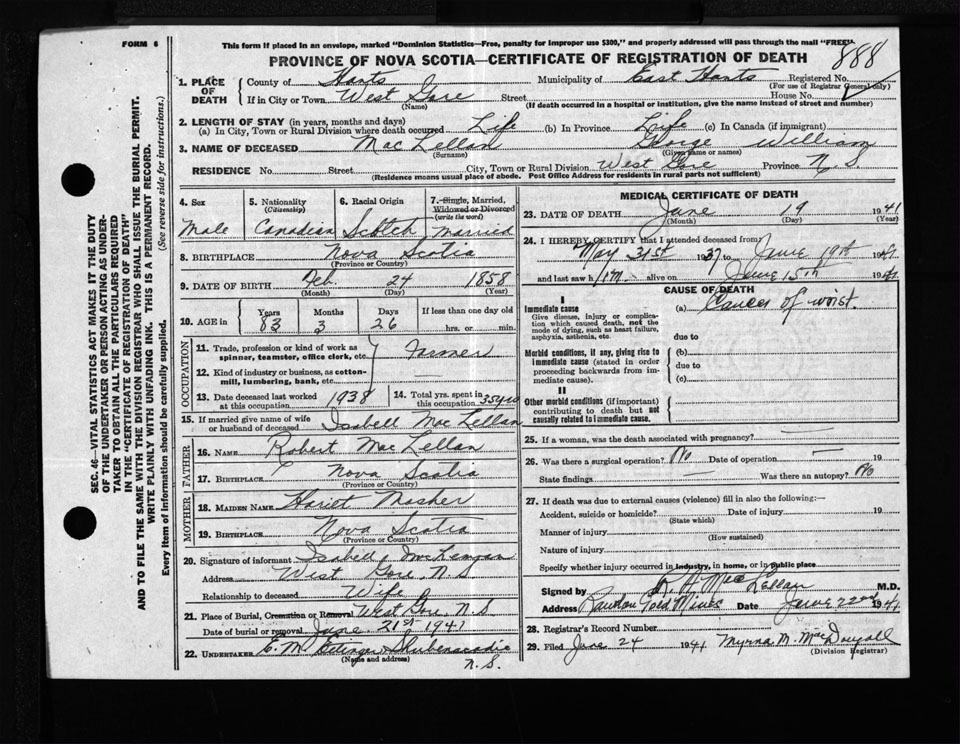 FORM 6
This form if placed in an envelope, marked "Dominion Statistics—Free, penalty for improper use $300," and properly addressed will pass through the mail "FREE".
888
PROVINCE OF NOVA SCOTIA—CERTIFICATE OF REGISTRATION OF DEATH
1. PLACE OF DEATH
County of Hants Municipality of East Hants Registered No.
(For use of Registrar General only)
If in City or Town West Gore Street House No.
(Name) (If death occurred in a hospital or institution, give the name instead of street and number)
2. LENGTH OF STAY (in years, months and days)
(a) In City, Town or Rural Division where death occurred Life (b) In Province Life (c) In Canada (if immigrant)
3. NAME OF DECEASED MacLellan George William
(Surname) (Given name or names)
RESIDENCE No. Street City, Town or Rural Division West Gore Province N.S.
(Residence means usual place of abode. Post Office Address for residents in rural parts not sufficient)
4. Sex Male
5. Nationality (Citizenship) Canadian
6. Racial Origin Scotch
7. Single, Married, Widowed or Divorced (write the word) Married
8. BIRTHPLACE Nova Scotia
(Province or Country)
9. DATE OF BIRTH Feb. 24 1858
(Month) (Day) (Year)
10. AGE in Years Months Days If less than one day old
83 3 26 hrs. or min.
OCCUPATION
11. Trade, profession or kind of work as spinner, teamster, office clerk, etc. Farmer
12. Kind of industry or business, as cotton-mill, lumbering, bank, etc. —
13. Date deceased last worked at this occupation 1938
14. Total yrs. spent in this occupation 35 yrs
15. If married give name of wife or husband of deceased Isabell MacLellan
FATHER
16. NAME Robert MacLellan
17. BIRTHPLACE Nova Scotia
(Province or Country)
MOTHER
18. MAIDEN NAME Hariet Mosher
19. BIRTHPLACE Nova Scotia
(Province or Country)
20. Signature of informant Isabell
Address West Gore N.S
Relationship to deceased Wife
21. Place of Burial, Cremation or Removal West Gore, N.S
Date of burial or removal June 21st 1941
22. UNDERTAKER E. M. Ettinger Shubenacadie
(Name and address) N.S.
MEDICAL CERTIFICATE OF DEATH
23. DATE OF DEATH June 19 1941
(Month) (Day) (Year)
24. I HEREBY CERTIFY that I attended deceased from
May 31st 1937 to June 19th 1941
and last saw him alive on June 15th 1941
CAUSE OF DEATH
I
Immediate cause (a) Cancer of wrist.
Give disease, injury or complication which caused death, not the mode of dying, such as heart failure, asphyxia, asthenia, etc.
due to
Morbid conditions, if any, giving rise to immediate cause (stated in order proceeding backwards from immediate cause).
(b)
due to
(c)
II
Other morbid conditions (if important) contributing to death but not causally related to immediate cause.
25. If a woman, was the death associated with pregnancy? —
26. Was there a surgical operation? No Date of operation — 19
State findings — Was there an autopsy? No
27. If death was due to external causes (violence) fill in also the following:—
Accident, suicide or homicide? Date of injury 19
(State which)
Manner of injury
(How sustained)
Nature of injury
Specify whether injury occurred in industry, in home, or in public place
Signed by MacLellan M.D.
Address Rawdon Gold Mines Date June 22nd 1941
28. Registrar's Record Number
29. Filed June 24 1941 Myrna M. MacDougall
(Division Registrar)
SEC. 46—VITAL STATISTICS ACT MAKES IT THE DUTY
OF THE UNDERTAKER OR PERSON ACTING AS UNDER-
TAKER TO OBTAIN ALL THE PARTICULARS REQUIRED
IN THE "CERTIFICATE OF REGISTRATION OF DEATH"
AND TO FILE THE SAME WITH THE DIVISION REGISTRAR WHO SHALL ISSUE THE BURIAL PERMIT.
WRITE PLAINLY WITH UNFADING INK. THIS IS A PERMANENT RECORD.
Every item of information should be carefully supplied. (See reverse side for instructions.)